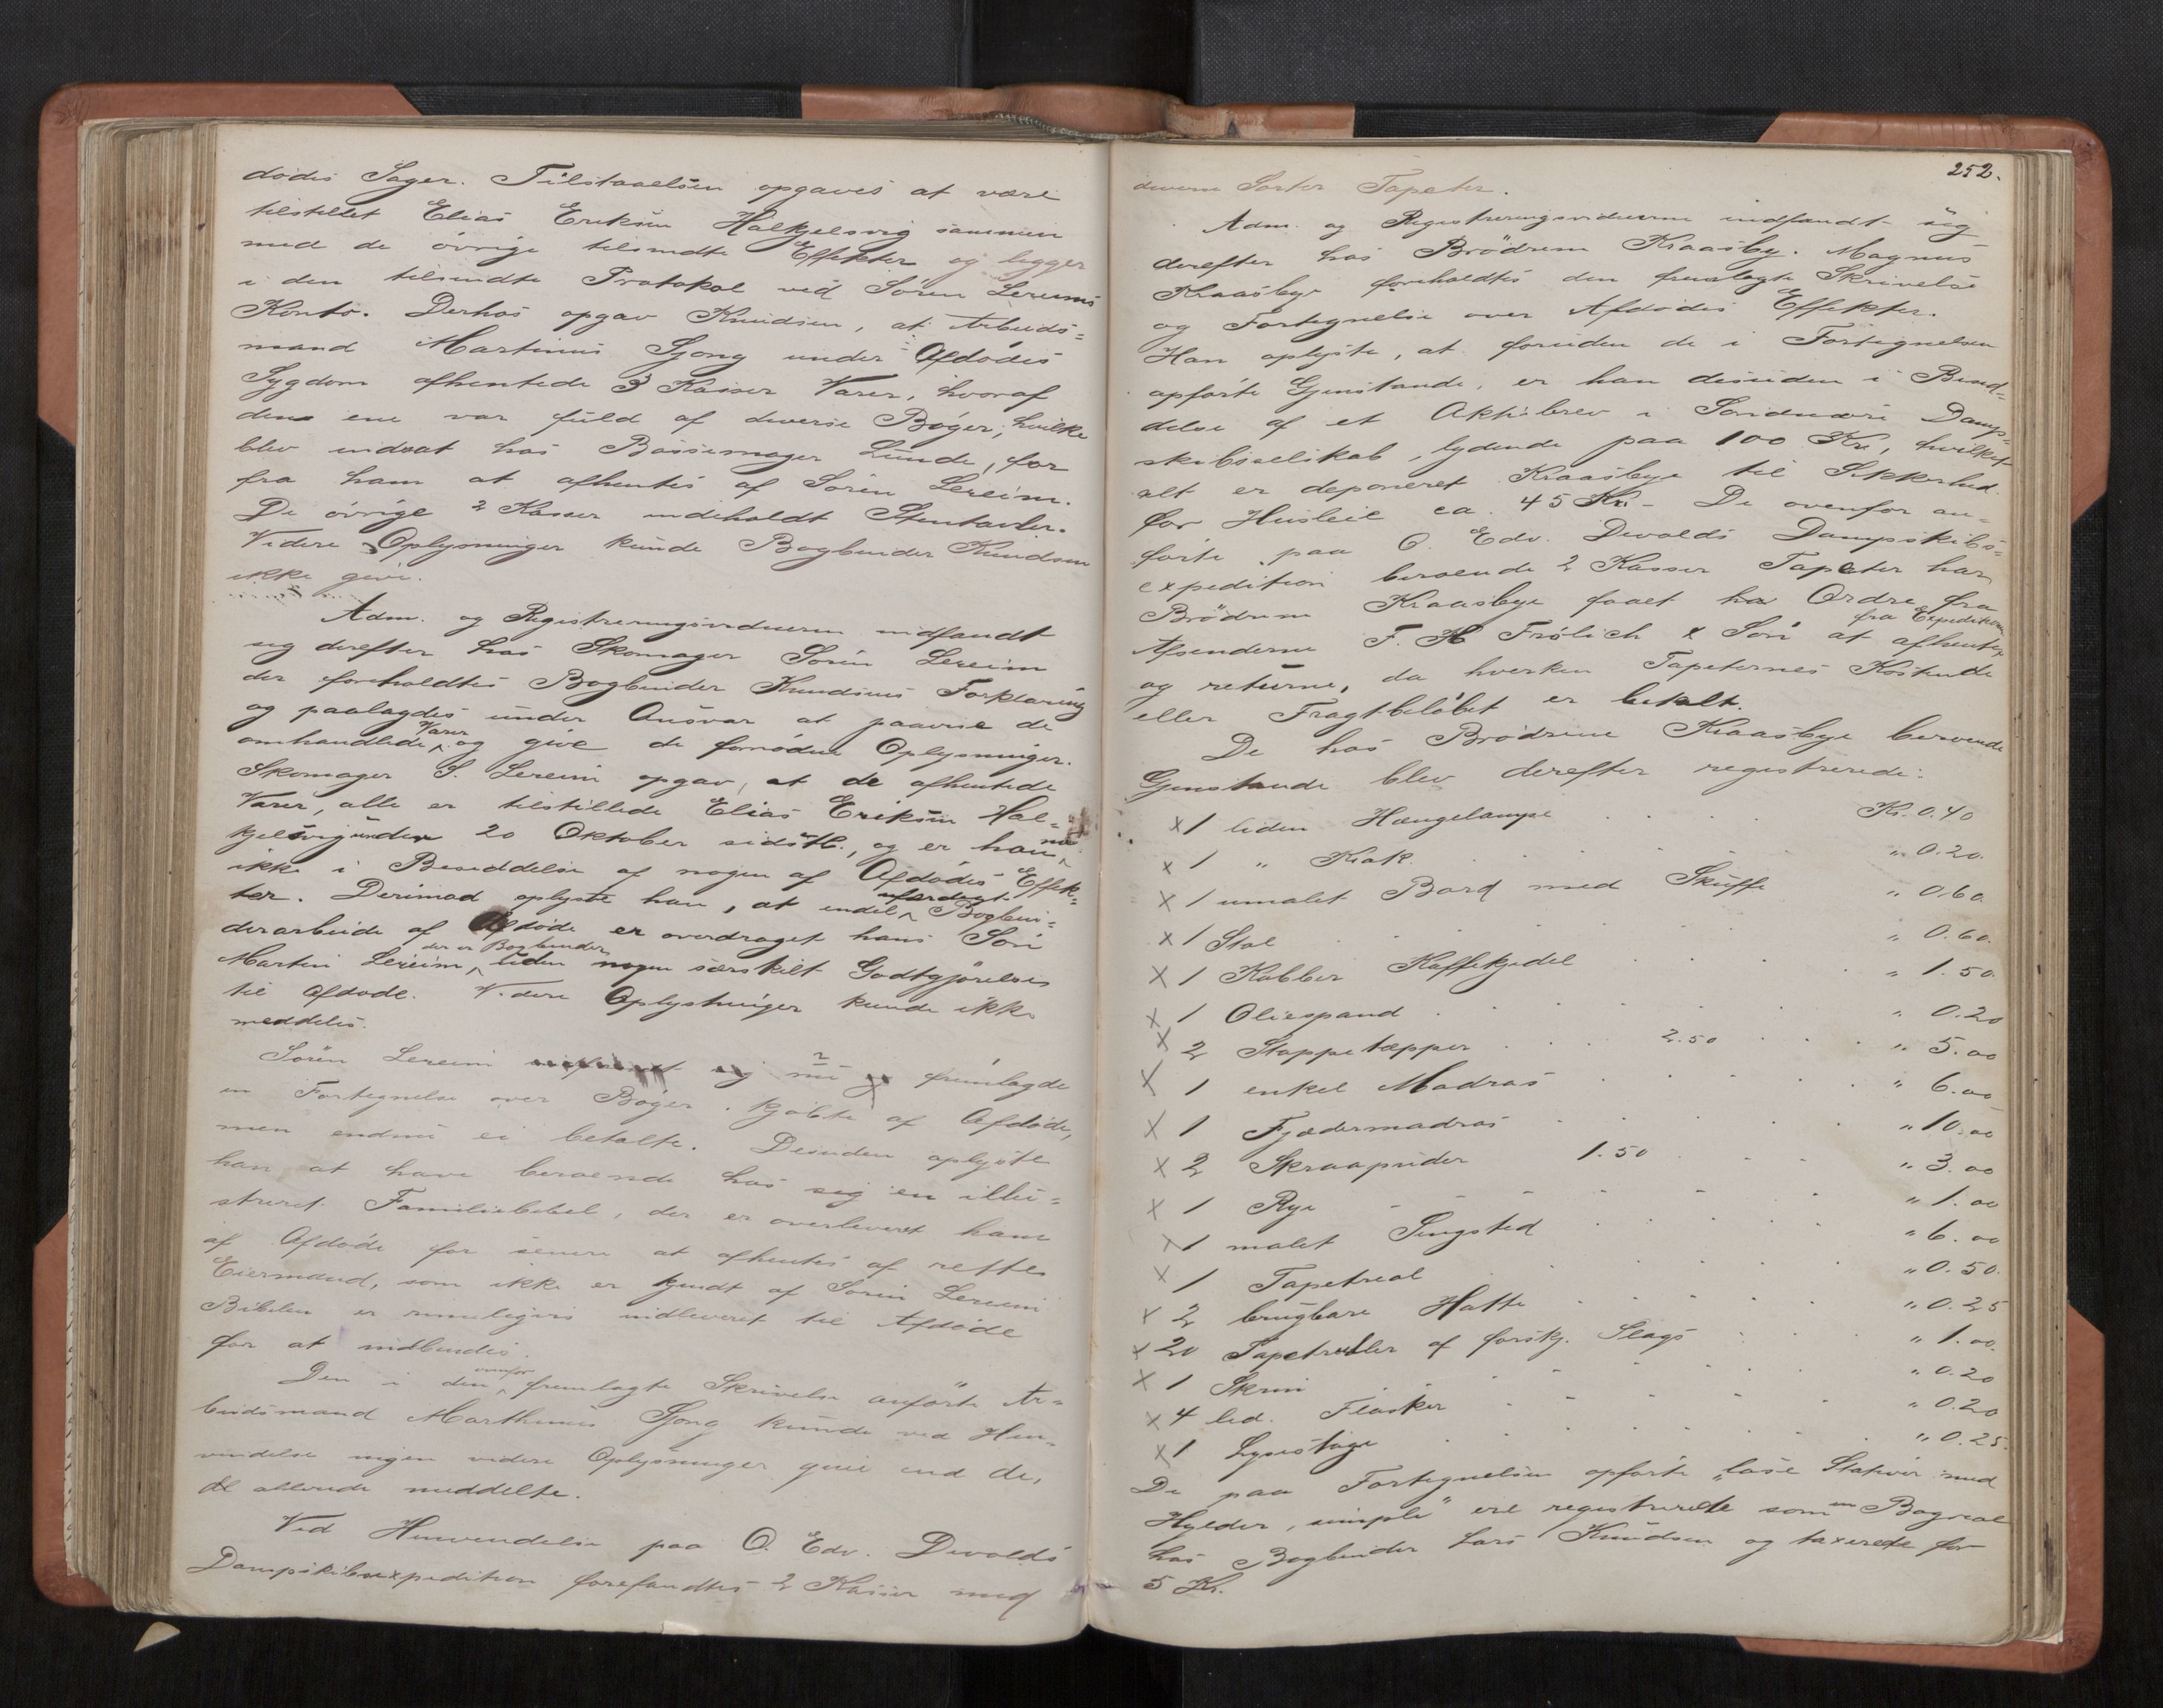 dødes Sager. Tilstaaelsen opgaves at være
tilstillet Elias Eriksen Halkjelsvig sammen
med de øvrige tilsendte Effekter og ligger
i den tilsendte Protokol ved Søren Lereims
Konto. Derhos opgav Knudsen, at Arbeids=
mand Martinus Sjong under Afdødes
Sygdom afhentede 3 Kasser Varer, hvoraf
den ene var fuld af diverse Bøger, hvilke
blev indsat hos Bøssemager Lunde, for
fra ham at afhentes af Søren Lereim.
De øvrige 2 Kasser indeholdt Stentavler.
Videre Oplysninger kunde Bogbinder Knudsen
ikke give.
Adm. og Registreringsvidnerne indfandt
sig derefter hos Skomager Søren Lereim
der foreholdtes Bogbinder Knudsens Forklaring
og paalagdes under Ansvar at paavise de
omhandlede Varer og give de fornødne Oplysninger.
Skomager S. Lereim opgav, at de afhentede
Varer, alle er tilstillede Elias Eriksen Hal=
kjelsvig under 20 Oktober sidstl., og er han nu
ikke i Besiddelse af nogen af Afdødes Effek=
ter. Derimod oplyste han, at endel ufærdigt Bogbin=
derarbeide af Afdøde er overdraget hans Søn
Martin Lereim, der er Bogbinder, uden nogen særskilt Godtgjørelse
til Afdøde. Videre Oplysninger kunde ikke
meddeles.
Søren Lereim nu fremlagde
en Fortegnelse over Bøger, kjøbte af Afdøde,
men endnu ei betalte. Desuden oplyste
han at have beroende hos sig en illu=
streret Familiebibel, der er overleveret ham
af Afdøde for senere at afhentes af rette
Eiermand, som ikke er kjendt af Søren Lereim
Bibelen er rimeligvis indleveret til Afdøde
for at indbindes.
Den i den ovenfor fremlagte Skrivelse anførte Ar=
beidsmand Marthinus Sjong kunde ved Hen=
vendelse ingen videre Oplysninger give end de,
allerede meddelte.
Ved Henvendelse paa O. Edv. Devolds
Dampskibsexpedition forefandtes 2 Kasser med
252.
diverse Sorter Tapeter.
Adm. og Registreringsvidnerne indfandt sig
derefter hos Brødrene Kraasby. Magnus
Kraasbye foreholdtes den fremlagte Skrivelse
og Fortegnelse over Afdødes Effekter.
Han oplyste, at foruden de i Fortegnelsen
opførte Gjenstande, er han desuden i Besid=
delse af et Aktiebrev i Søndmøre Damp=
skibsselskab, lydende paa 100 Kr, hvilket
alt er deponeret Kraasbye til Sikkerhed
for Husleie ca. 45 Kr. De ovenfor an=
førte paa O. Edv. Devolds Dampskibs=
expedition beroende 2 Kasser Tapeter har
Brødrene Kraasbye faaet Ordre fra
Afsenderne F. H Frølich & Søn at afhente fra Expeditionen
og returne, da hverken Tapeternes Kostende
eller Fragtbeløbet er betalt.
De hos Brødrene Kraasbye beroende
Gjenstande blev derefter registrerede:
x 1 liden Hængelampe . . . Kr. 0.40
x 1 " Krak . . . " 0.20.
x 1 umalet Bord med Skuffe " 0.60
x 1 Stol . . . " 0.60.
x 1 Kobber Kaffekjedel . . . " 1.50.
x 1 Oliespand . . . " 0.20
x 2 Stoppetæpper . . . 2.50 . . . " 5.00
x 1 enkel Madras . . . " 6.00
x 1 Fjædermadras . . . " 10.00
x 2 Skraapuder 1.50 . . . " 3.00
x 1 Rye . . . " 1.00
x 1 malet Sengsted . . . " 6.00
x 1 Tapetreol . . . " 0.50.
x 2 brugbare Hatte . . . " 0.25
x 20 Tapetruller af forskj. Slags . . . " 1.00.
x 1 Skrin . . . " 0.20
x 4 led. Flasker . . . " 0.20
x 1 Lysestage . . . " 0.25.
De paa Fortegnelsen opførte "løse Stativer med
Hylder, simple" ere registrerede som en Bogreol
hos Bogbinder Lars Knudsen og taxerede for
5 Kr.